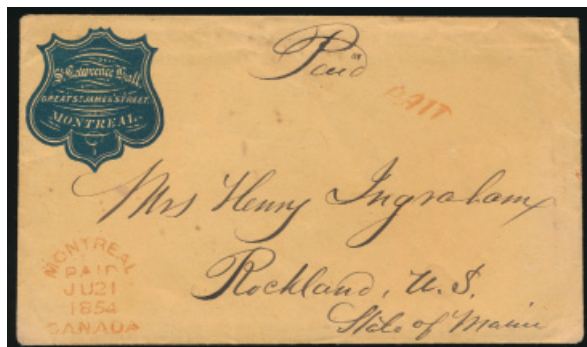 St. Lawrence Hall
GREAT ST. JAMES STREET.
MONTREAL.
Paid
PAID
Mrs Henry Ingraham
Rockland, U.S.
State of Maine
MONTREAL
PAID
JU21
1854
CANADA